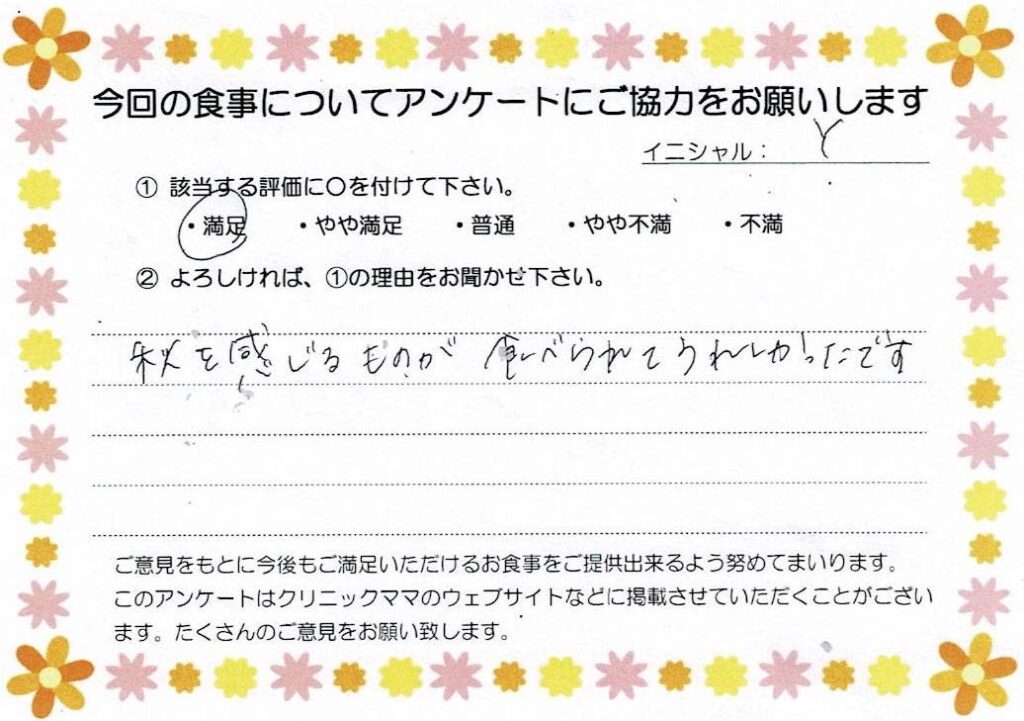 今回の食事についてアンケートにご協力をお願いします
イニシャル: Y
① 該当する評価に〇を付けて下さい。
・満足 ・やや満足 ・普通 ・やや不満 ・不満
② よろしければ、①の理由をお聞かせ下さい。
秋を感じるものが 食べられてうれしかったです
ご意見をもとに今後もご満足いただけるお食事をご提供出来るよう努めてまいります。
このアンケートはクリニックママのウェブサイトなどに掲載させていただくことがござい
ます。たくさんのご意見をお願い致します。